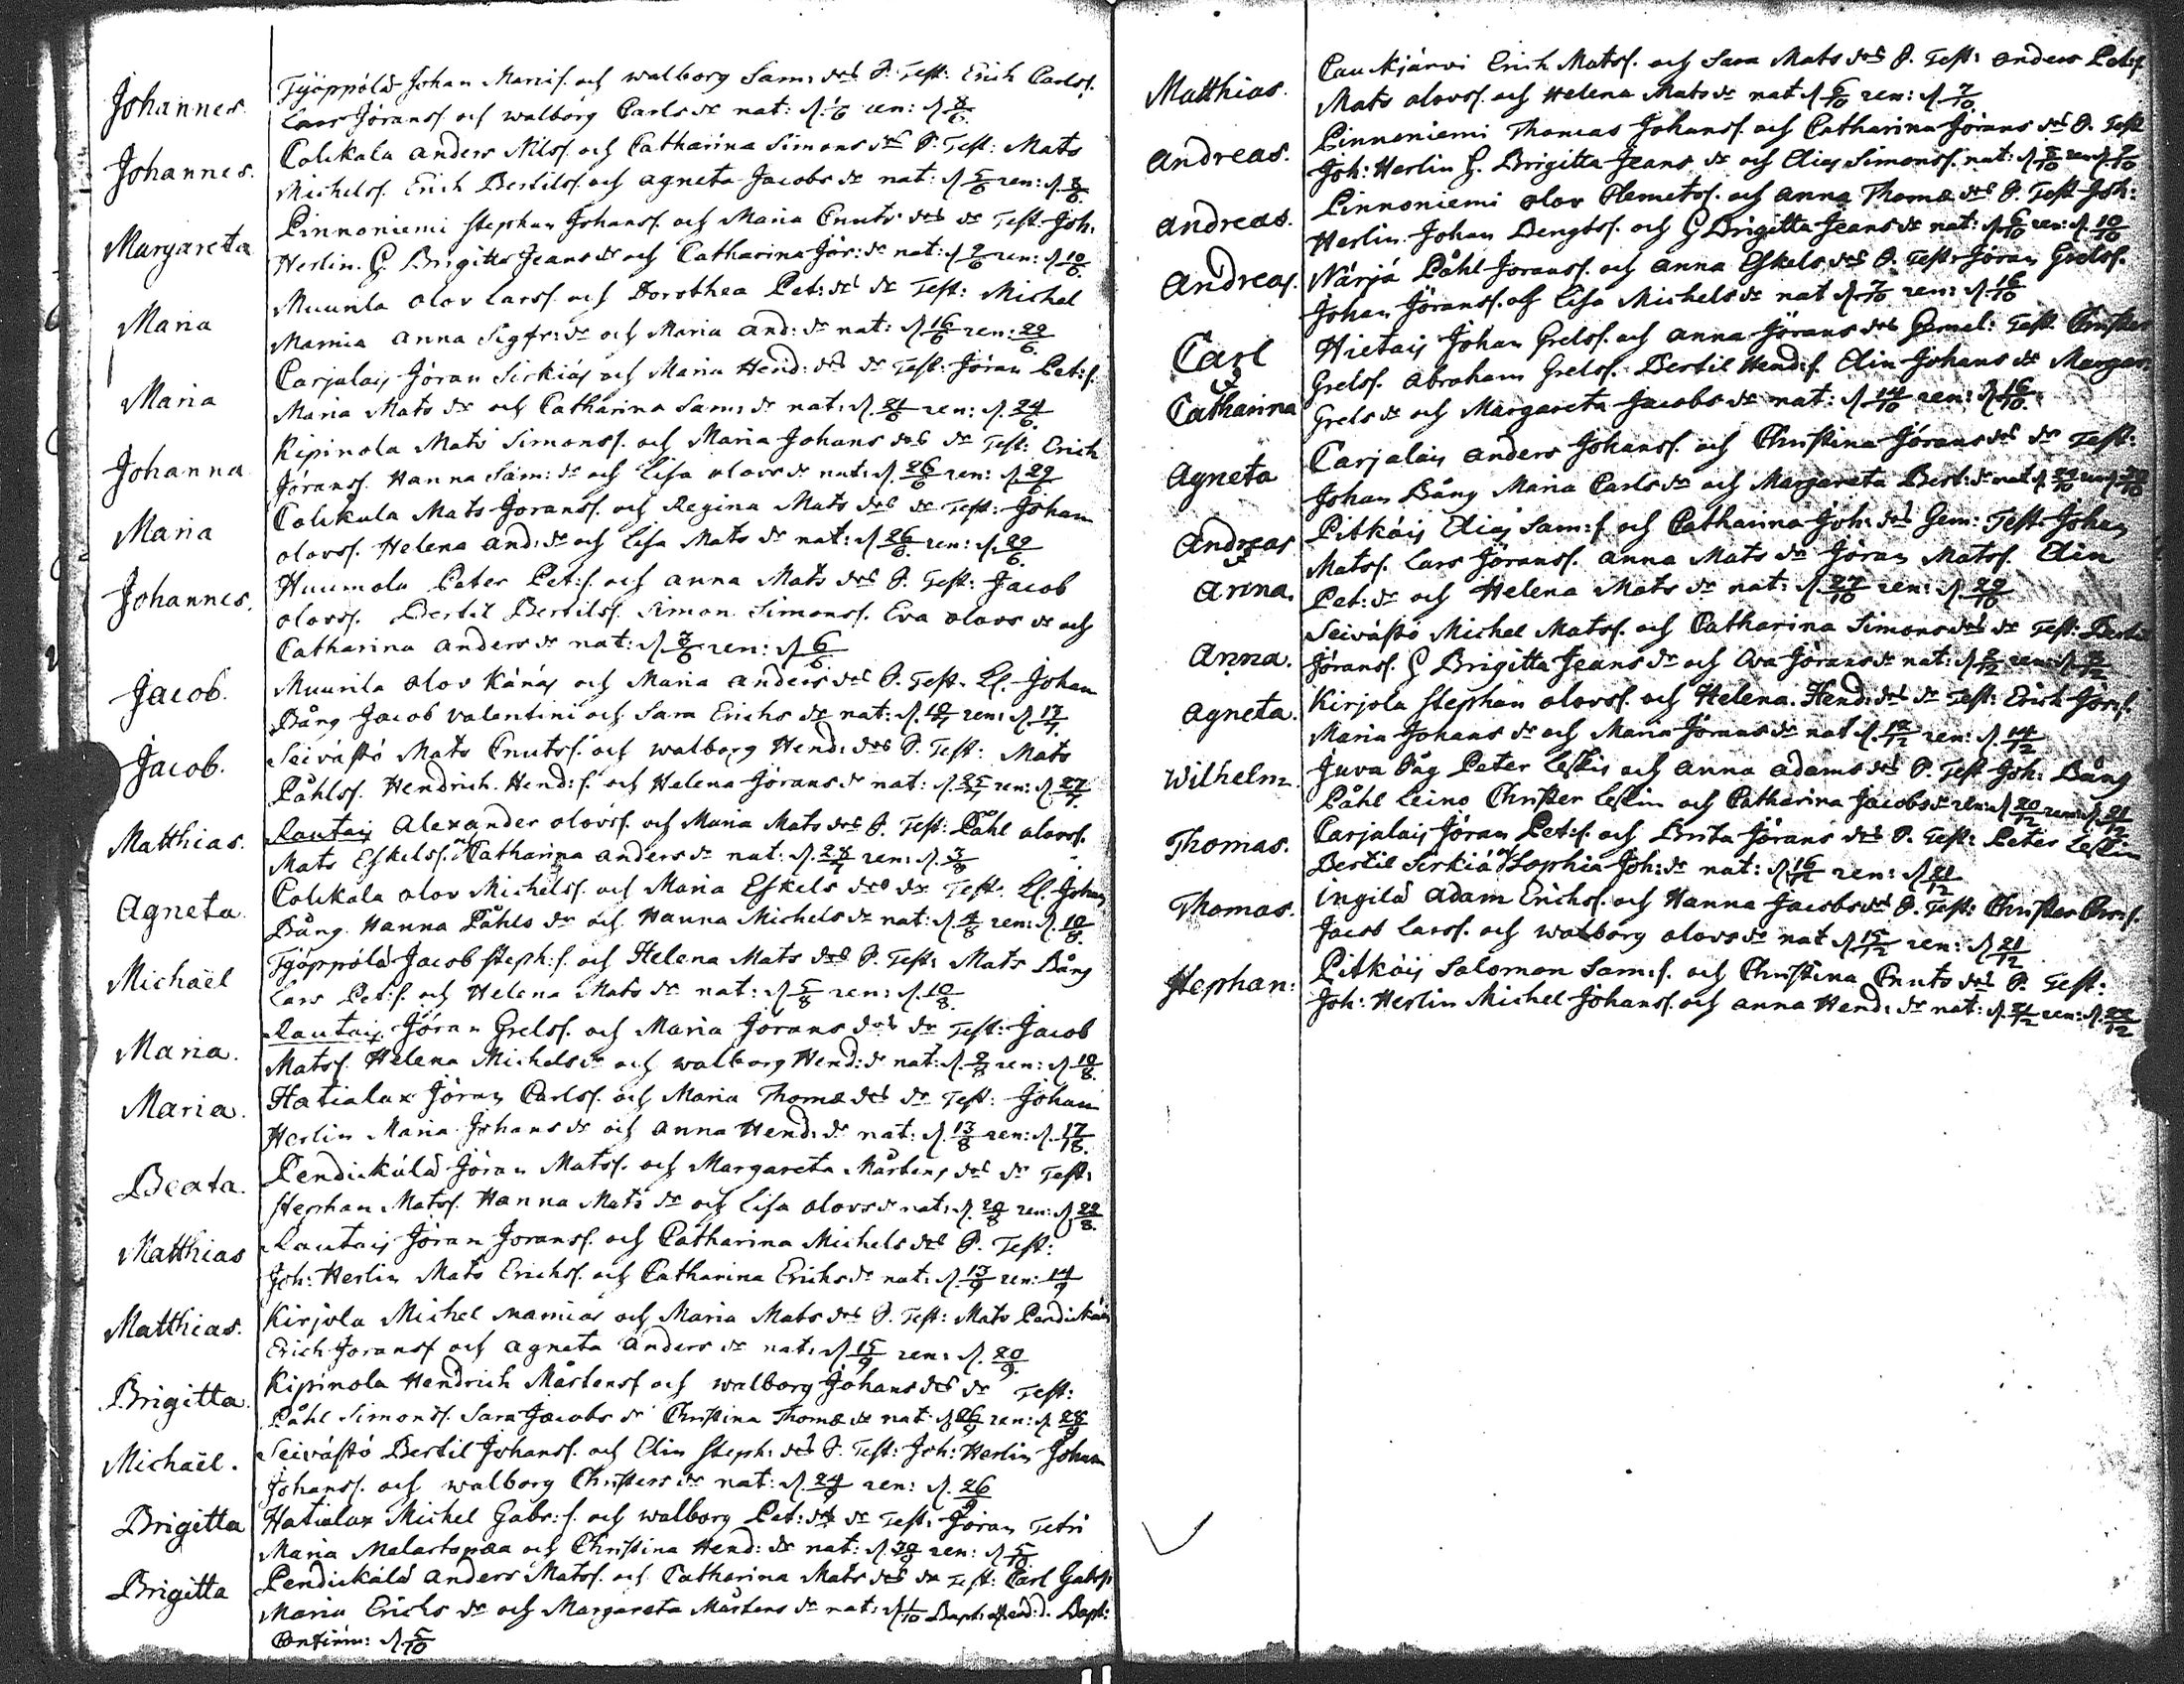 Johannes. Työppölä Johan Mariis. och walborg Sam: dr P. Test: Erich Carlss.
Lars Jöranss och walborg Carls dr nat: d. ren: d.
Johannes. Colckala anders Nilss. och Catharina Simons dr P. Test: Mats
Michelss. Erich Bertilss. och agneta Jacobs dr nat: d. 5/6 ren: d. 8/6
Margareta Pinnoniemi Stephan Johanss. och Maria Cnuts dr Test Joh.
Herlin. G. Brigitta Jeans dr och Catharina Jör: dr nat: d 9/6 ren: d 10/6
Maria Muurila olov Larss. och Dorothea Pet: dr Test: Michel
Mamia anna Sigfr: dr och Maria and: dr nat: d. 16/6 ren: 22/6
Maria Carjalais Jöran Sirkiäs och Maria Hend: dr Test: Jöran Pet: s.
Maria Mats dr och Catharina Sam: dr nat: d. 21/6 ren: d. 24/6
Johanna Kipinola Mats Simonss. och Maria Johans dr Test: Erich
Jöranss. Hanna Sam: dr och Lisa olovs dr nat: d. 26/6 ren: d. 29/6
Maria Colckala Mats Joranss. och Regina Mats dr Test: Johan
olovss. Helena And: dr och Lisa Mats dr nat: d. 26/6 ren: d. 29/6
Johannes. Huumola Peter Pet: s. och anna Mats dr P. Test: Jacob
olovss. Bertil Bertilss. Simon Simonss. Eva olovs dr och
Catharina anders dr nat: d. 3/6 ren: d 6/6
Jacob. Muurila olov Känäs och Maria anders dr P. Test. Johan
Bång Jacob Valentini och Sara Erichs dr nat: d. ren: d. 17/7
Jacob. Seivästö Mats Cnutss. och walborg Hend: dr P. Test: Mats
Påhlss. Hendrich Hend: s. och Helena Jörans dr nat: d. 25/7 ren: d. 27/7
Matthias. Rautais Alexander olovss. och Maria Mats dr P. Test: Påhl olovss.
Mats Eskelss. Catharina anders dr nat: d. ren: d. 3/8
Agneta Colckala olov Michelss. och Maria Eskels dr Test: Johan
Bång Hanna Påhls dr och Hanna Michels dr nat: d. 4/8 ren: d. 10/8
Michaël Työppölä Jacob Steph: s. och Helena Mats dr P. Test: Mats Bång
Lars Pet: s. och Helena Mats dr nat: d 5/8 ren: d. 10/8
Maria. Rautais Jöran Grelss. och Maria Jörans dr Test: Jacob
Matss. Helena Michels dr och walborg Hend: dr nat: d. 9/8 ren: d 10/8
Maria. Hatialax Jöran Carlss. och Maria Thomæ dr Test: Johan
Herlin Maria Johans dr och anna Hend: dr nat: d. 13/8 ren: d. 17/8
Beata. Pendickälä Jöran Matss. och Margareta Mårtens dr Test:
Stephan Matss. Hanna Mats dr och Lisa olovs dr nat: d. 20/8 ren: d 22/8
Matthias Rautais Jöran Joranss. och Catharina Michels dr P. Test:
Joh: Herlin Mats Erichss. och Catharina Erichs dr nat: d. 13/9 ren: 14/9
Matthias. Kirjola Michel Mamias och Maria Mats dr P. Test: Mats Pendickäin
Erich Joranss och agneta anders dr nat: d 15/9 ren: d. 20/9
Brigitta. Kipinola Hendrich Mårtenss och walborg Johans dr Test:
Påhl Simonss. Sara Jacobs dr Christina Thomæ dr nat: d 26/9 ren: d 28/9
Michaël. Seivästö Bertil Johanss. och Elin Steph: dr P. Test: Joh: Herlin Johan
Johanss. och walborg Christers dr nat: d. 24/9 ren: d. 26/9
Brigitta Hatialax Michel Gabr: s. och walborg Pet: dr Test: Jöran Tetri
Maria Malastopæa och Christina Hend: dr nat: d. 30/9 ren: d 5/10
Brigitta Pendickälä anders Matss. och Catharina Mats dr Test: Carl Gabrss
Maria Erichs dr och Margareta Mårtens dr nat: d 1/10 Bapt:
Confirm: d 5/10
Matthias. Cauckjärvi Erich Matss. och Sara Mats dr P. Test: anders Pet: s
Mats olovss. och Helena Mats dr nat d 6/10 ren: d 7/10
Andreas. Pinnoniemi Thomas Johanss. och Catharina Jörans dr P. Test
Joh: Herlin G. Brigitta Jeans dr och Elias Simonss. nat: d 5/10 ren d. 7/10
Andreas. Pinnoniemi olov Clemetss. och anna Thomæ dr P. Test Joh:
Herlin Johan Bengtss. och G Brigitta Jeans dr nat: d 6/10 ren: d. 10/10
Andreas. Närjä Påhl Joranss. och anna Eskels dr P. Test: Jöran Grelss.
Johan Jöranss. och Lisa Michels dr nat d 7/10 ren: d. 16/10
Carl & Catharina Hietais Johan Grelss. och anna Jörans dr Gemel: Test: Christer
Grelss. Abraham Grelss. Bertil Hend: s. Elin Johans dr Margar.
Grels dr och Margareta Jacobs dr nat: d 14/10 ren: d 16/10
Agneta Carjalais anders Johanss. och Christina Jörans dr Test:
Johan Bång Maria Carls dr och Margareta Bert: dr nat d. ren d.
Andreas & Anna. Pitkäis Elias Sam: s. och Catharina Joh: dr Gem: Test: Johan
Matss. Lars Jöranss. anna Mats dr Jöran Matss. Elin
Pet: dr och Helena Mats dr nat: d. 27/10 ren: d. 29/10
Anna. Seivästö Michel Matss. och Catharina Simons dr Test: Bertil
Jöranss. G Brigitta Jeans dr och Eva Jörans dr nat: d ren: d
Agneta. Kirjola Stephan olovss. och Helena Hend: dr Test: Erich Jör: s.
Maria Johans dr och Maria Jörans dr nat d. 12/12 ren: d. 14/12
Wilhelm. Juva Påg Peter Leskis och anna adams dr P. Test Joh: Bång
Påhl Leino Christer Leskin och Catharina Jacobs dr d 20/12 ren: d. 21/12
Thomas. Carjalais Jöran Pet: s. och Brita Jörans dr P. Test: Peter Leskin
Bertil Serkiä och Sophia Joh: dr nat: d 16/12 ren: d 21/12
Thomas. Ingilä Adam Erichss. och Hanna Jacobs dr P. Test: Christer Chr: s.
Jacob Larss. och walborg olovs dr nat d 15/12 ren: d 21/12
Stephan: Pitkäis Salomon Sam: s. och Christina Cnuts dr P. Test.
Joh: Herlin Michel Johanss. och anna Hend: dr nat: d. 21/12 ren: d. 22/12